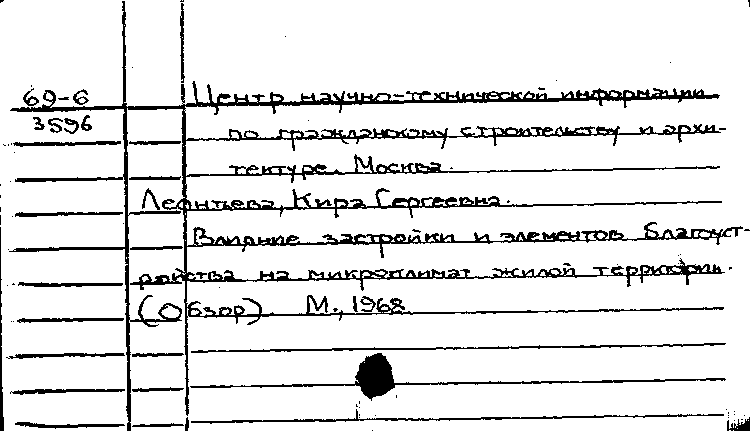 69-6 Центр научно-технической информации
3596 по гражданскому строительству и архи-
тектуре. Москва.
Леонтьева, Кира Сергеевна.
Влияние застройки и элементов благоуст-
ройства на микроклимат жилой территории.
(Обзор). М., 1968